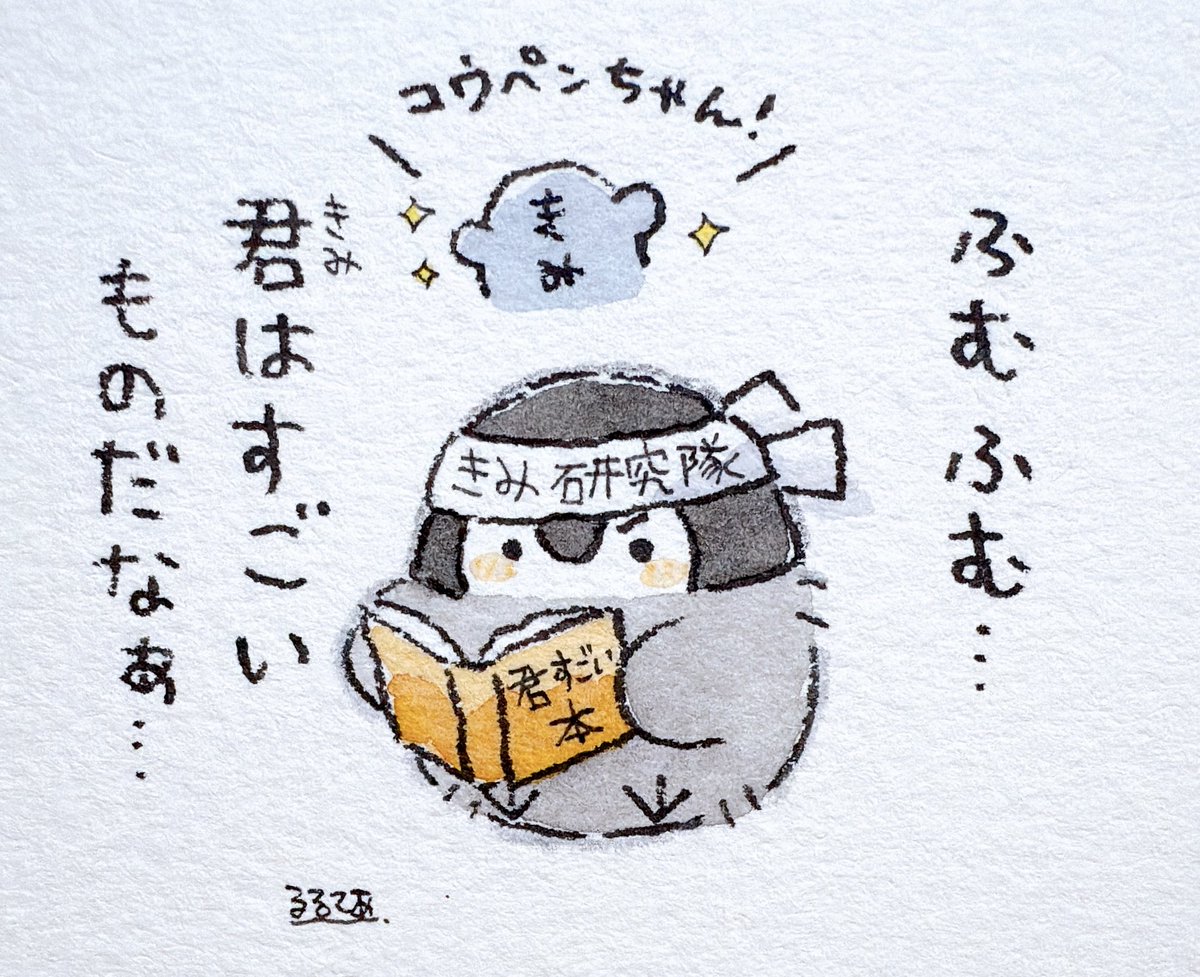 コウペンちゃん！
きみ
ふむふむ…
きみ
君はすごい
ものだなぁ…
きみ研究隊
君すごい
本
るるてあ